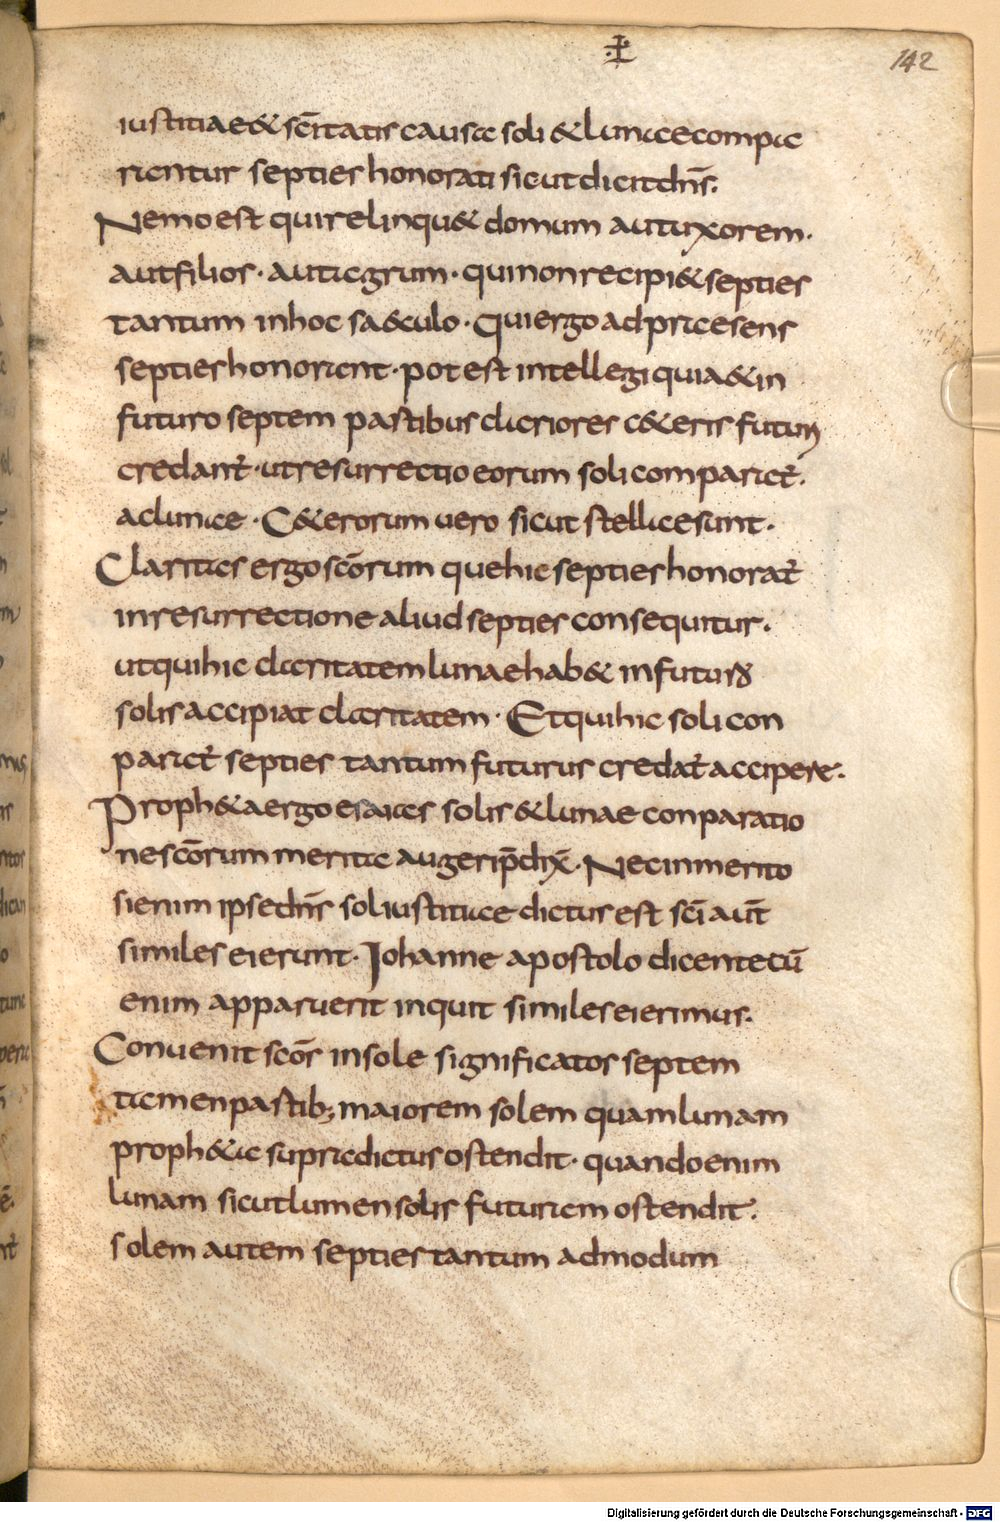 142
iustitiae & sc̄itatis causa soli & lunae compa
rantur septies honorati sicut dicit dn̄s.
Nemo est qui relinqu& domum aut uxorem.
aut filios · aut agrum · qui non recipi& septies
tantum in hoc sa&culo · Qui ergo ad praesens
septies honorant · potest intellegi quia & in
futuro septem pastibus clariores c&eris futuri
credant̄ · ut resurrectio eorum soli comparet̄.
ac lunae · C&erorum uero sicut stellae sunt.
Claritas ergo sc̄orum que hic septies honorat̄
in resurrectione aliud septies consequitur.
ut qui hic claritatem lunae hab& in futuro
solis accipiat claritatem · Et qui hic soli con
paret̄ septies tantum futurus credat̄ accipere.
Proph&a ergo esaias solis & lunae conparatio
ne sc̄orum merita auger& p̄dix̄ · Nec inmerito
si enim ipse dn̄s sol iustitiae dictus est sc̄i aut̄
similes ei erunt · Iohanne apostolo dicente cū
enim apparuerit inquit similes ei erimus.
Conuenit sc̄os in sole significatos septem
tamen pastib; maiorem solem quam lunam
proph&a supradictus ostendit · quando enim
lunam sicut lumen solis futuram ostendit.
solem autem septies tantum admodum
Digitalisierung gefördert durch die Deutsche Forschungsgemeinschaft - DFG